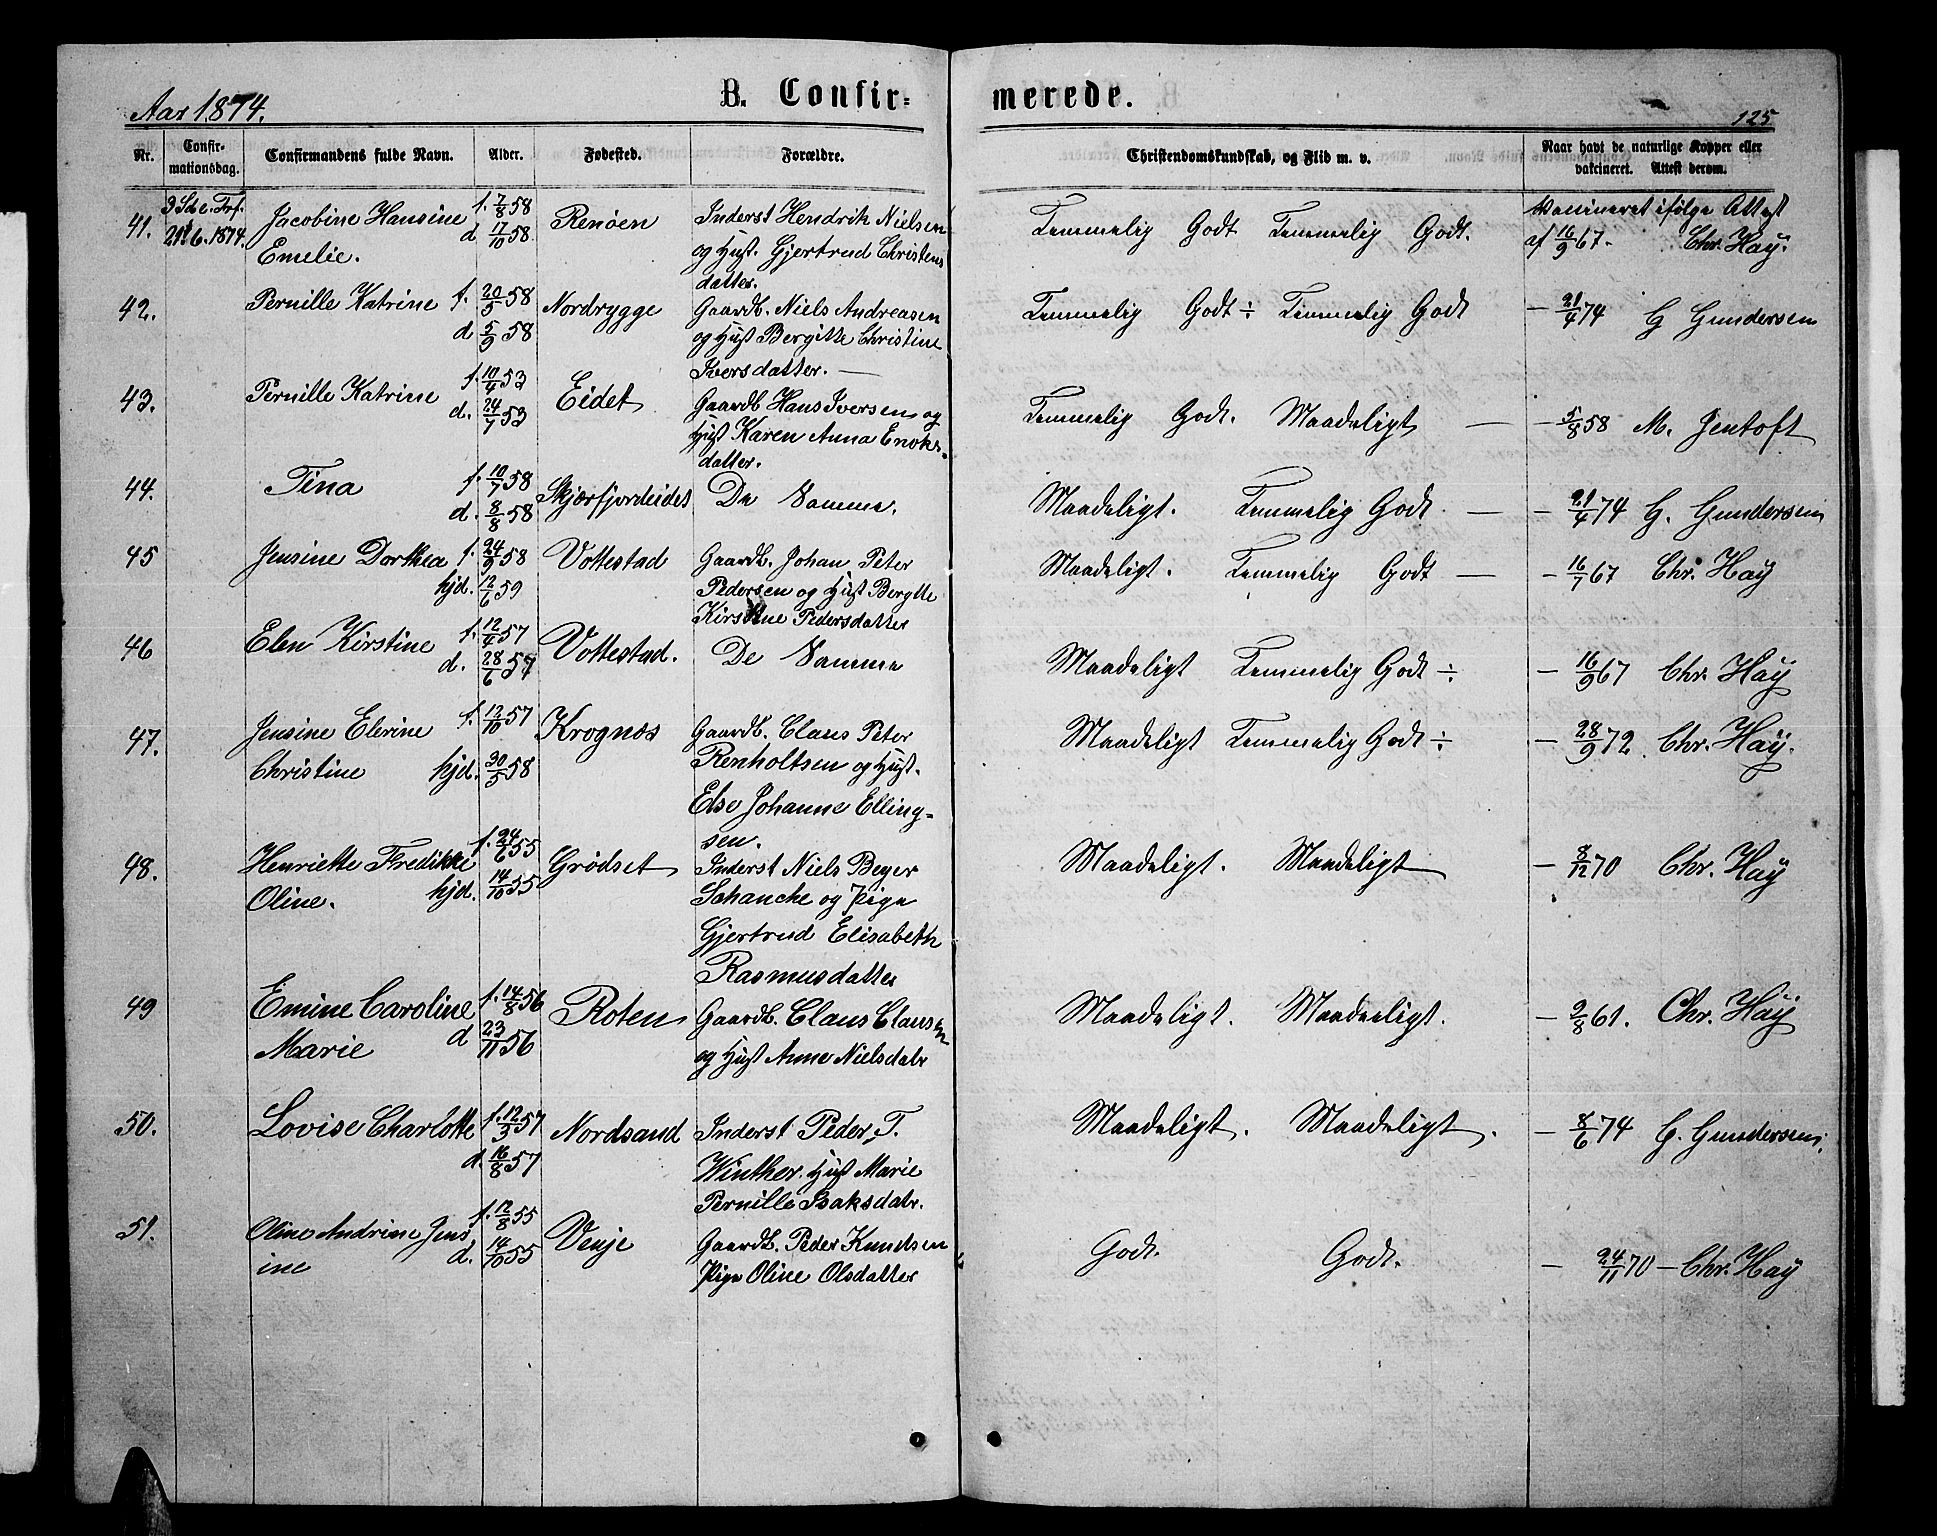 Aar 1874.
B. Confir=
merede.
125
Nr.
Confir-
mationsdag.
Confirmandens fulde Navn.
Alder.
Fødested.
Forældre.
Christendomskundskab, og Flid m. v.
Naar havt de naturlige Kopper eller
vakcineret. Attest derom.
41.
3 Sde. Trf.
21/6. 1874.
Jacobine Hansine
Emelie.
f. 7/8 58
d 17/10 58.
Renøen
Inderst Hendrik Nielsen
og Hust. Gjertrud Christens
datter.
Temmelig Godt Temmelig Godt.
Vaccineret ifølge Attest
af 16/9 67. Chr. Hay.
42.
Pernille Katrine
f. 20/5 58
d 5/9 58
Nordrygge
Gaardb. Niels Andreasen
og Hust Bergitte Christine
Iversdatter. —
Temmelig Godt ÷ Temmelig Godt
— 21/4 74 G Gundersen
43.
Pernille Katrine
f. 10/4 53
d. 24/7 53
Eidet
Gaardb Hans Iversen og
Hust Karen Anna Enoks-
datter.
Temmelig Godt. Maadeligt —
— 5/8 58 M. Jentoft
44.
Tina
f. 10/7 58
d. 8/8 58
Skjærfjordeidet
De Samme.
Maadeligt. Temmelig Godt. —
— 21/4 74 G. Gundersen
45
Jensine Dorthea
f. 24/9 58
hjd. 12/6 59
Vottestad
Gaardb. Johan Peter
Pedersen og Hust Bergtte
Kirstine Pedersdatter
Maadeligt. Temmelig Godt —
— 16/7 67 Chr. Hay
46
Elen Kirstine
f. 12/4 57
d. 28/6 57
Vottestad.
De Samme
Maadeligt Temmelig Godt ÷
— 16/9 67 Chr. Hay
47.
Jensine Elerine
Christine
f. 12/10 57
hjd. 30/5 58
Krognæs
Gaardb. Claus Peter
Renholtsen og Hust.
Else Johanne Elling=
sen.
Maadeligt Temmelig Godt ÷
— 28/9 72. Chr. Hay.
48.
Henriette Fredikke
Oline.
f. 24/6 55
hjd. 14/10 55
Grødset
Inderst Niels Beyer
Schanche og Pige
Gjertrud Elisabeth
Rasmusdatter
Maadeligt. Maadeligt
— 8/12 70 Chr. Hay
49
Emine Caroline
Marie
f. 14/8 56
d 23/11 56
Roten
Gaardb. Claus Clausen
og Hust Anne Nielsdatr
Maadeligt. Maadeligt.
— 9/8 61. Chr. Hay
50.
Lovise Charlotte
f. 12/3 57
d. 16/8 57
Nordsand
Inderst Peder T.
Winther. Hust Marie
Pernille Isaksdatr.
Maadeligt. Maadeligt.
— 8/6 74 G. Gundersen.
51.
Oline Andrine Jens
ine
f. 12/8 55
d. 14/10 55
Venje
Gaardb. Peder Knudsen
Pige Oline Olsdatter
Godt. Godt.
— 24/11 70 — Chr. Hay